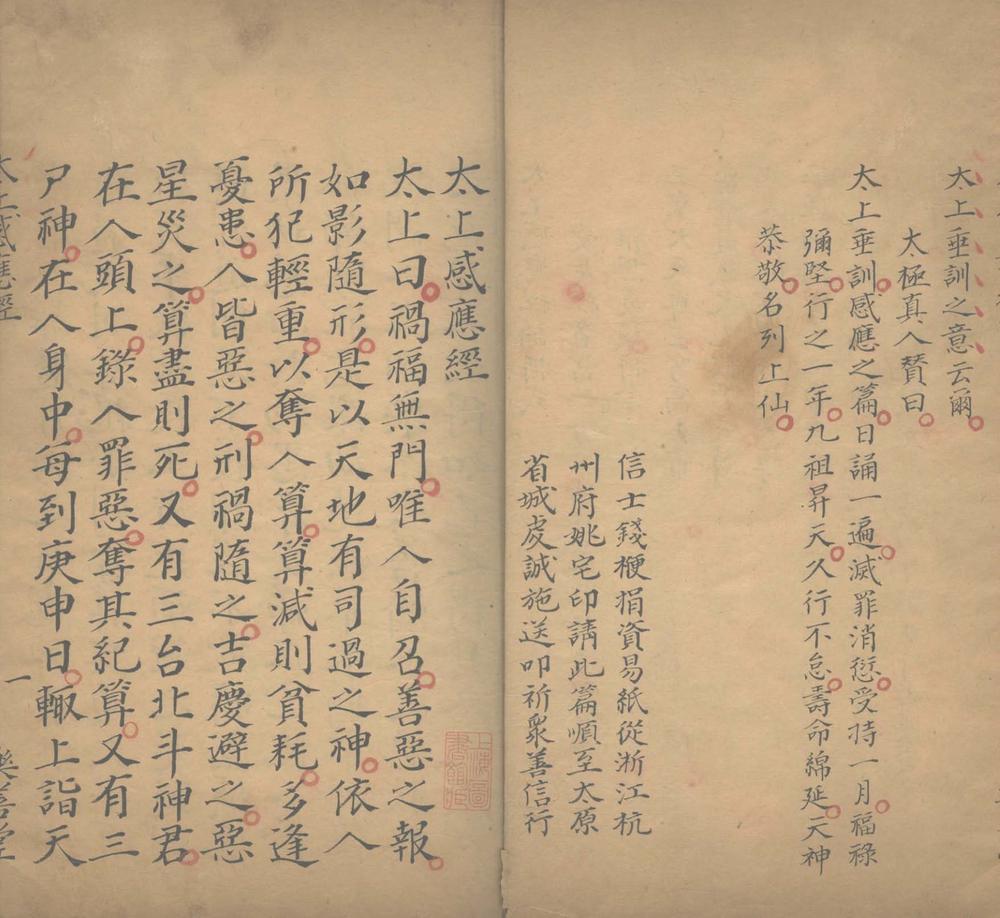 太上垂訓之意云爾
太極真人贊曰
太上垂訓感應之篇日誦一遍滅罪消愆受持一月福祿
彌堅行之一年九祖昇天久行不怠壽命綿延天神
恭敬名列上仙
信士錢梗捐資易紙從淅江杭
州府姚宅印請此篇順至太原
省城虔誠施送叩祈眾善信行
太上感應經
太上曰禍福無門唯人自召善惡之報
如影隨形是以天地有司過之神依人
所犯輕重以奪人算算減則貧耗多逢
憂患人皆惡之刑禍隨之吉慶避之惡
星災之算盡則死又有三台北斗神君
在人頭上錄人罪惡奪其紀算又有三
尸神在人身中每到庚申日輙上詣天
太上感應經
一